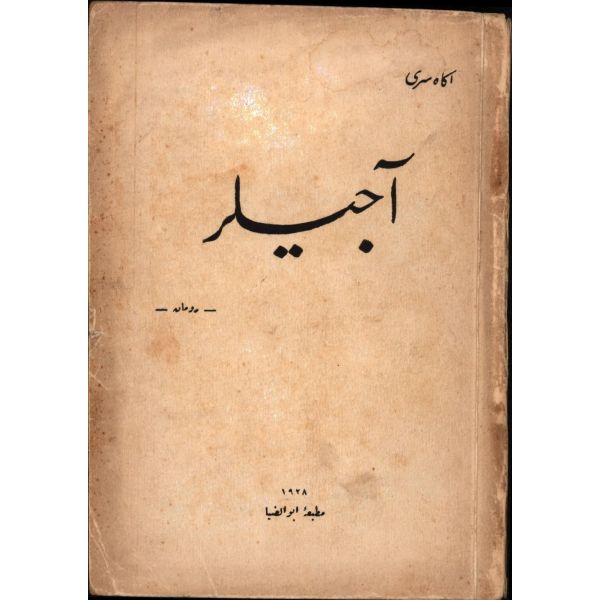 اكاه سری
آجيلر
— رومان —
١٩٢٨
مطبعهٔ ابوالضيا